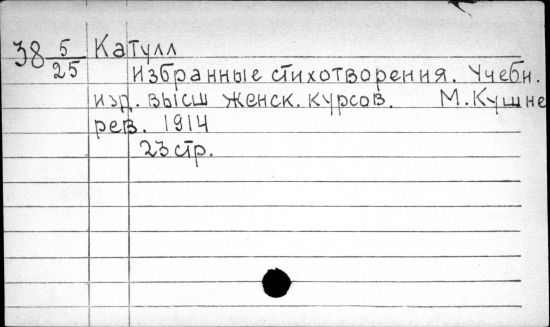 38 5/25 Катулл
Избранные стихотворения. Учебн.
изд. высш женск. курсов. М. Кушне
рев. 1914
23 стр.